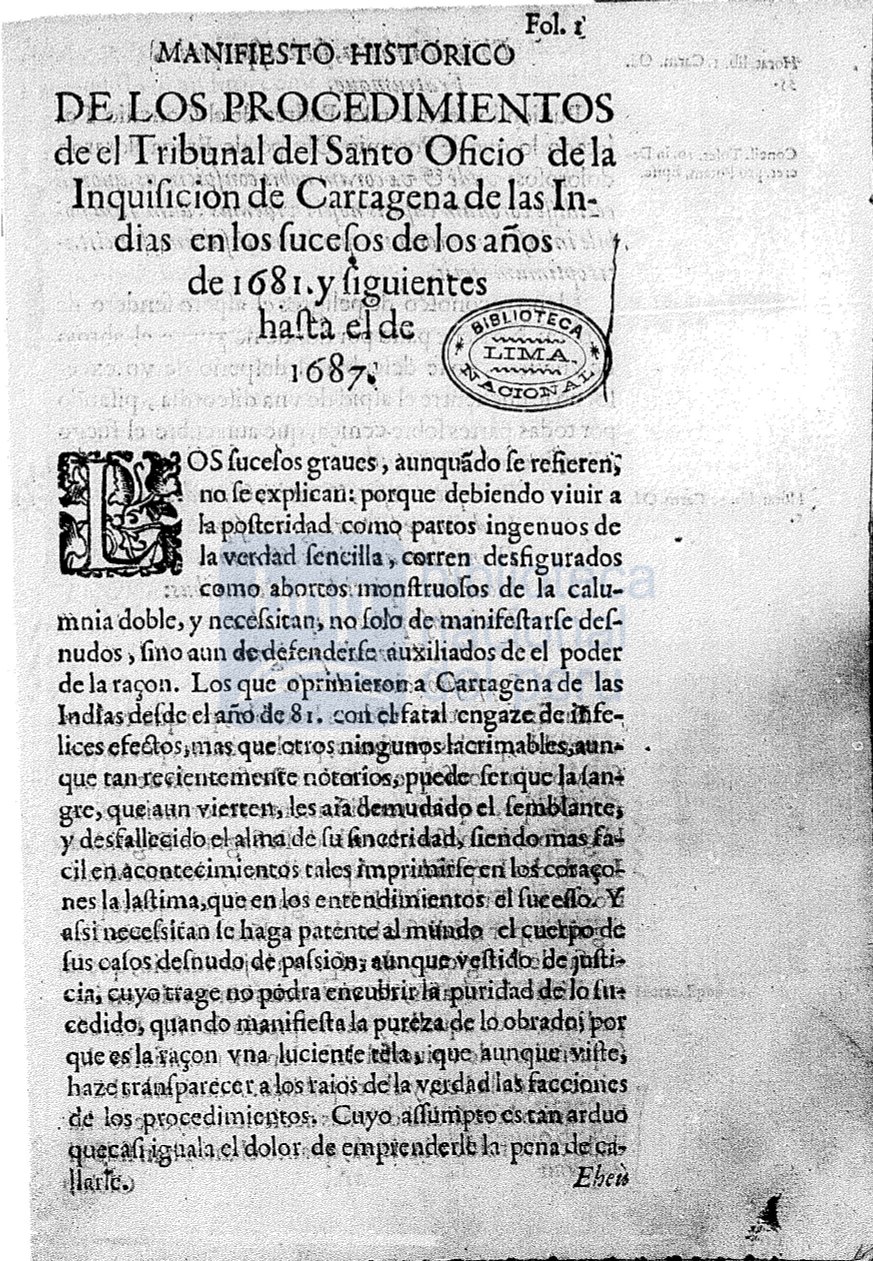 Fol. 1
MANIFIESTO HISTORICO
DE LOS PROCEDIMIENTOS
de el Tribunal del Santo Oficio de la
Inquiſicion de Cartagena de las In-
dias en los ſuceſos de los años
de 1681. y ſiguientes
haſta el de
1687.
BIBLIOTECA
LIMA.
NACIONAL
LOS ſuceſos graues, aunquãdo ſe refieren,
no ſe explican: porque debiendo viuir a
la poſteridad como partos ingenuos de
la verdad ſencilla, corren desfigurados
como abortos monſtruoſos de la calu-
mnia doble, y neceſsitan, no ſolo de manifeſtarſe deſ-
nudos, ſino aun de defenderſe auxiliados de el poder
de la raçon. Los que oprimieron a Cartagena de las
Indias deſde el año de 81. con el fatal engaze de infe-
lices efectos, mas que otros ningunos lacrimables, aun-
que tan recientemente notorios, puede ſer que la ſan-
gre, que aun vierten, les aia demudado el ſemblante,
y desfallecido el alma de ſu ſinceridad, ſiendo mas fá-
cil en acontecimientos tales imprimirſe en los coraço-
nes la laſtima, que en los entendimientos el ſuceſſo. Y
aſsi neceſsitan ſe haga patente al mundo el cuerpo de
ſus caſos deſnudo de paſsion, aunque veſtido de juſti-
cia, cuyo trage no podra encubrir la puridad de lo ſu-
cedido, quando manifieſta la pureza de lo obrado; por
que es la raçon vna luciente tela, que aunque viſte,
haze tranſparecer a los raios de la verdad las facciones
de los procedimientos. Cuyo aſſumpto es tan arduo
que caſi iguala el dolor de emprenderle la pena de ca-
llarſe.
Eheù
biblioteca
nacional
del perú